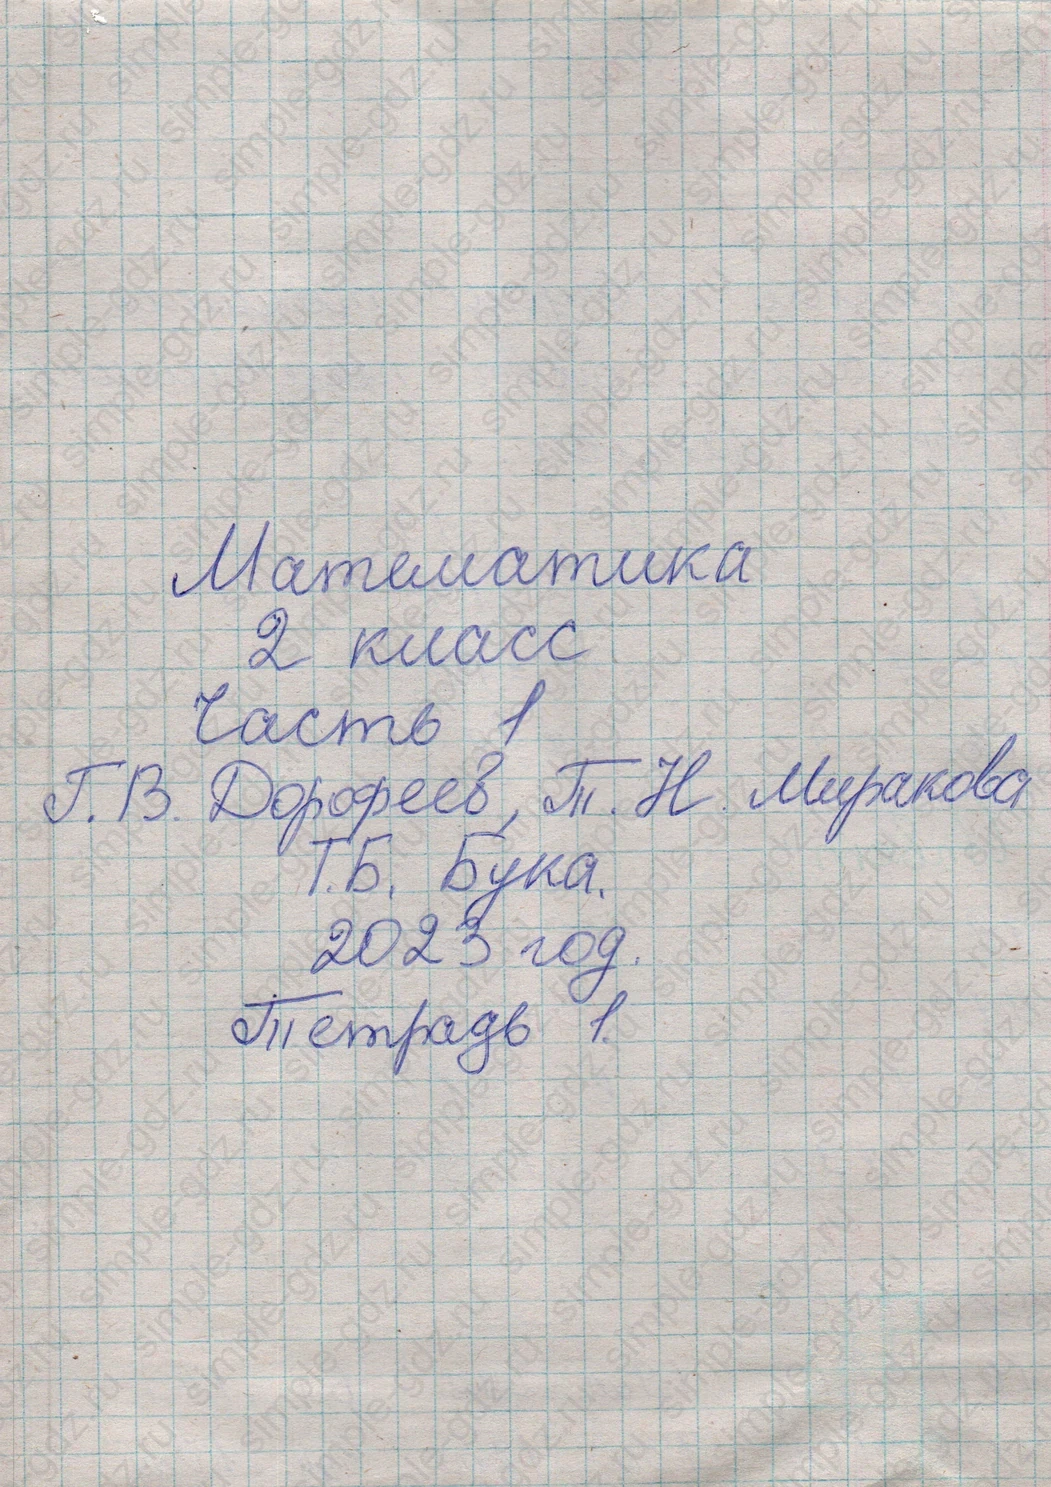 Математика
2 класс
Часть 1
Г.В. Дорофеев, Т.Н. Миракова
Т.Б. Бука.
2023 год.
Тетрадь 1.
simple-gdz.ru